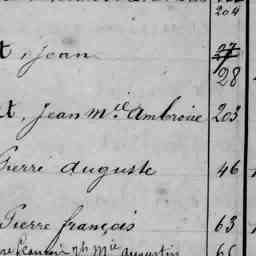 204
t, Jean 27
28
t, Jean Mie Ambroise 203
Pierre auguste 46
Pierre françois 63
Mie Augustin